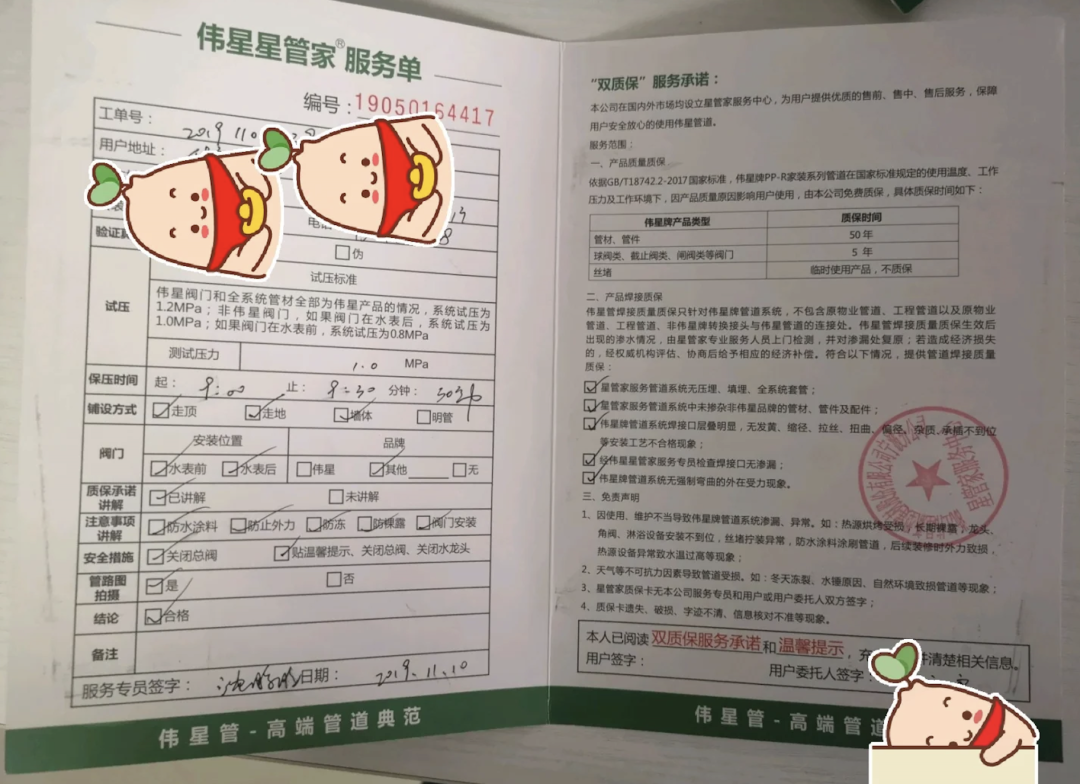 伟星星管家®服务单
编号：19050164417
工单号：
2019 110
用户地址：
电话
13
8
验证
伪
试压
试压标准
伟星阀门和全系统管材全部为伟星产品的情况，系统试压为
1.2MPa；非伟星阀门，如果阀门在水表后，系统试压为
1.0MPa；如果阀门在水表前，系统试压为0.8MPa
测试压力 1.0 MPa
保压时间 起： 9:00 止： 9:30 分钟： 30
铺设方式 走顶 走地 墙体 明管
阀门 安装位置 品牌
水表前 水表后 伟星 其他 无
质保承诺
讲解
已讲解 未讲解
注意事项
讲解
防水涂料 防止外力 防冻 防裸露 阀门安装
安全措施 关闭总阀 贴温馨提示、关闭总阀、关闭水龙头
管路图
拍摄
是 否
结论 合格
备注
服务专员签字： 日期： 2019.11.10
伟星管-高端管道典范
“双质保”服务承诺：
本公司在国内外市场均设立星管家服务中心，为用户提供优质的售前、售中、售后服务，保障
用户安全放心的使用伟星管道。
服务范围：
一、产品质量质保
依据GB/T18742.2-2017国家标准，伟星牌PP-R家装系列管道在国家标准规定的使用温度、工作
压力及工作环境下，因产品质量原因影响用户使用，由本公司免费质保，具体质保时间如下：
伟星牌产品类型 质保时间
管材、管件 50 年
球阀类、截止阀类、闸阀类等阀门 5 年
丝堵 临时使用产品，不质保
二、产品焊接质保
伟星管焊接质量质保只针对伟星牌管道系统，不包含原物业管道、工程管道以及原物业
管道、工程管道、非伟星牌转换接头与伟星管道的连接处。伟星管焊接质量质保生效后
出现的渗水情况，由星管家专业服务人员上门检测，并对渗漏处复原；若造成经济损失
的，经权威机构评估、协商后给予相应的经济补偿。符合以下情况，提供管道焊接质量
质保：
星管家服务管道系统无压埋、填埋、全系统套管；
星管家服务管道系统中未掺杂非伟星品牌的管材、管件及配件；
伟星牌管道系统焊接口层叠明显，无发黄、缩径、拉丝、扭曲、偏径、杂质、承插不到位
等安装工艺不合格现象；
经伟星星管家服务专员检查焊接口无渗漏；
伟星牌管道系统无强制弯曲的外在受力现象。
星管家服务中心
三、免责声明
1、因使用、维护不当导致伟星牌管道系统渗漏、异常。如：热源烘烤受损，长期裸露，龙头、
角阀、淋浴设备安装不到位，丝堵拧装异常，防水涂料涂刷管道，后续装修时外力致损，
热源设备异常致水温过高等现象；
2、天气等不可抗力因素导致管道受损。如：冬天冻裂、水锤原因、自然环境致损管道等现象；
3、星管家质保卡无本公司服务专员和用户或用户委托人双方签字；
4、质保卡遗失、破损、字迹不清、信息核对不准等现象。
本人已阅读双质保服务承诺和温馨提示，充
并清楚相关信息。
用户签字： 用户委托人签字：
伟星管-高端管道